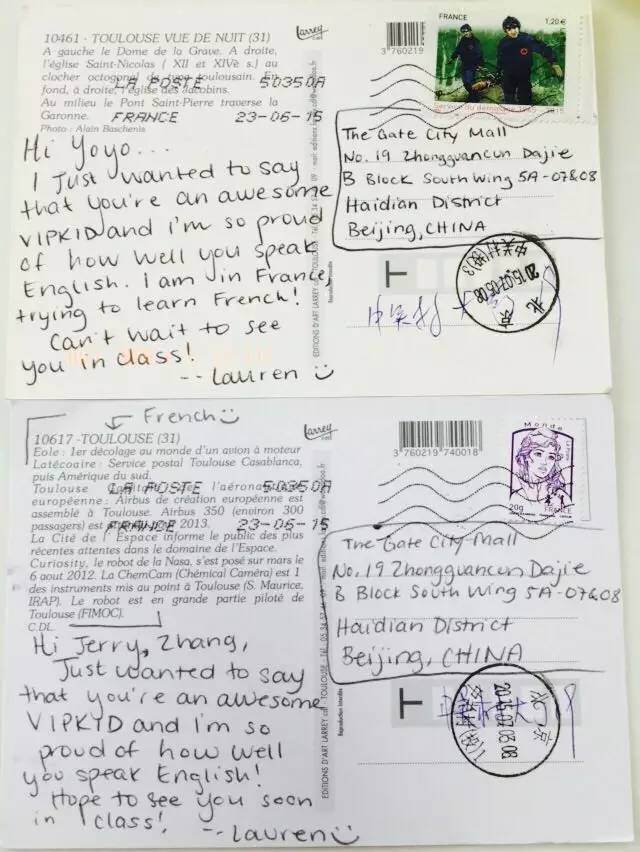 10461 - TOULOUSE VUE DE NUIT (31)
A gauche le Dome de la Grave. A droite,
l'église Saint-Nicolas ( XII et XIVè s.) au
clocher octogonal de type toulousain. En
fond, à droite, l'église des Jacobins.
Au milieu le Pont Saint-Pierre traverse la
Garonne.
Photo : Alain Baschenis
LA POSTE 50350A
FRANCE 23-06-15
Hi Yoyo...
I Just wanted to say
that you're an awesome
VIPKID and I'm so proud
of how well you speak
English. I am in France,
trying to learn French!
Can't wait to see
you in class!
-- Lauren
Larrey
3 760219
FRANCE
1,20 €
The Gate City Mall
No. 19 Zhongguancun Dajie
B Block South Wing 5A-07&08
Haidian District
Beijing, CHINA
T
北京
EDITIONS D'ART LARREY
Reproduction interdite
French
10617 - TOULOUSE (31)
Eole : 1er décolage au monde d'un avion à moteur
Latécoaire : Service postal Toulouse Casablanca,
puis Amérique du sud.
Toulouse Capitale de l'aéronautique
européenne : Airbus de création européenne est
assemblé à Toulouse. Airbus 350 (environ 300
passagers) est 2013.
La Cité de l'Espace informe le public des plus
récentes attentes dans le domaine de l'Espace.
Curiosity, le robot de la Nasa, s'est posé sur mars le
6 aout 2012. La ChemCam (Chémical Caméra) est 1
des instruments mis au point à Toulouse (S. Maurice,
IRAP). Le robot est en grande partie piloté de
Toulouse (FIMOC).
C.DL
LA POSTE 50350A
FRANCE 23-06-15
Hi Jerry, Zhang,
Just wanted to say
that you're an awesome
VIPKID and I'm so
proud of how well
you speak English!
Hope to see you soon
in class!
-- Lauren
Larrey
3 760219 740018
Monde
20g
FRANCE
The Gate City Mall
No. 19 Zhongguancun Dajie
B Block South Wing 5A-07&08
Haidian District
Beijing, CHINA
T
北京
EDITIONS D'ART LARREY
Reproduction interdite